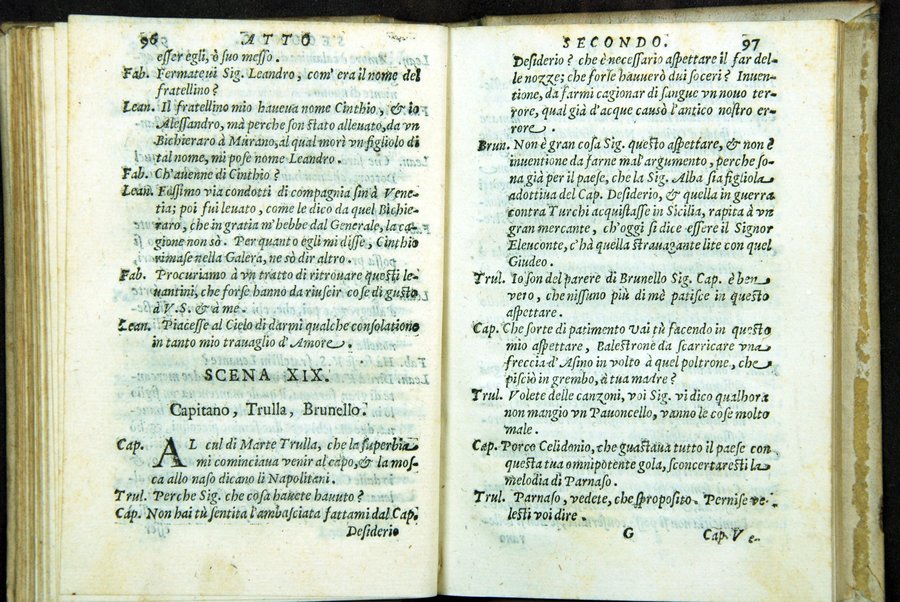 96 ATTO
esser egli, ò suo messo.
Fab. Fermateui Sig. Leandro, com' era il nome del
fratellino?
Lean. Il fratellino mio haueua nome Cinthio, & io
Alessandro, mà perche son stato alleuato, da vn
Bichieraro à Murano, al qual morì vn figliolo di
tal nome, mi pose nome Leandro.
Fab. Ch'auenne di Cinthio?
Lean. Fossimo via condotti di compagnia sin'à Vene-
tia; poi fui leuato, come le dico da quel Bichie-
raro, che in gratia m'hebbe dal Generale, la ca-
gione non sò. Per quanto egli mi disse, Cinthio
rimase nella Galera, ne sò dir altro.
Fab. Procuriamo à vn tratto di ritrouare questi le-
uantini, che forse hanno da riuscir cose di gusto
à V.S. & à me.
Lean. Piacesse al Cielo di darmi qualche consolatione
in tanto mio trauaglio d'Amore.
SCENA XIX.
Capitano, Trulla, Brunello.
Cap. AL cul di Marte Trulla, che la superbia
mi cominciaua venir al capo, & la mos-
ca allo naso dicano li Napolitani.
Trul. Perche Sig. che cosà hauete hauuto?
Cap. Non hai tù sentita l'ambasciata fattami dal Cap.
Desiderio
SECONDO. 97
Desiderio? che è necessario aspettare il far del-
le nozze; che forse hauuerò dui soceri? Inuen-
tione, da farmi cagionar di sangue vn nouo ter-
rore, qual già d'acque causò l'antico nostro er-
rore.
Brun. Non è gran cosa Sig. questo aspettare, & non è
inuentione da farne mal'argumento, perche so-
na già per il paese, che la Sig. Alba sia figliola
adottiua del Cap. Desiderio, & quella in guerra
contra Turchi acquistasse in Sicilia, rapita à vn
gran mercante, ch'oggi si dice essere il Signor
Eleuconte, c'hà quella strauagante lite con quel
Giudeo.
Trul. Io son del parere di Brunello Sig. Cap. è ben
vero, che nissuno più di mè patisce in questo
aspettare.
Cap. Che sorte di patimento vai tù facendo in questo
mio aspettare, Balestrone da scarricare vna
freccia d'Asino in volto à quel poltrone, che
pisciò in grembo, à tua madre?
Trul. Volete delle canzoni, voi Sig. vi dico qualhora
non mangio vn Pauoncello, vanno le cose molto
male.
Cap. Porco Celidonio, che guastaua tutto il paese con
questa tua omnipotente gola, sconcertaresti la
melodia di Parnaso.
Trul. Parnaso, vedete, che sproposito. Pernise ve-
lesti voi dire.
G Cap. Ve-